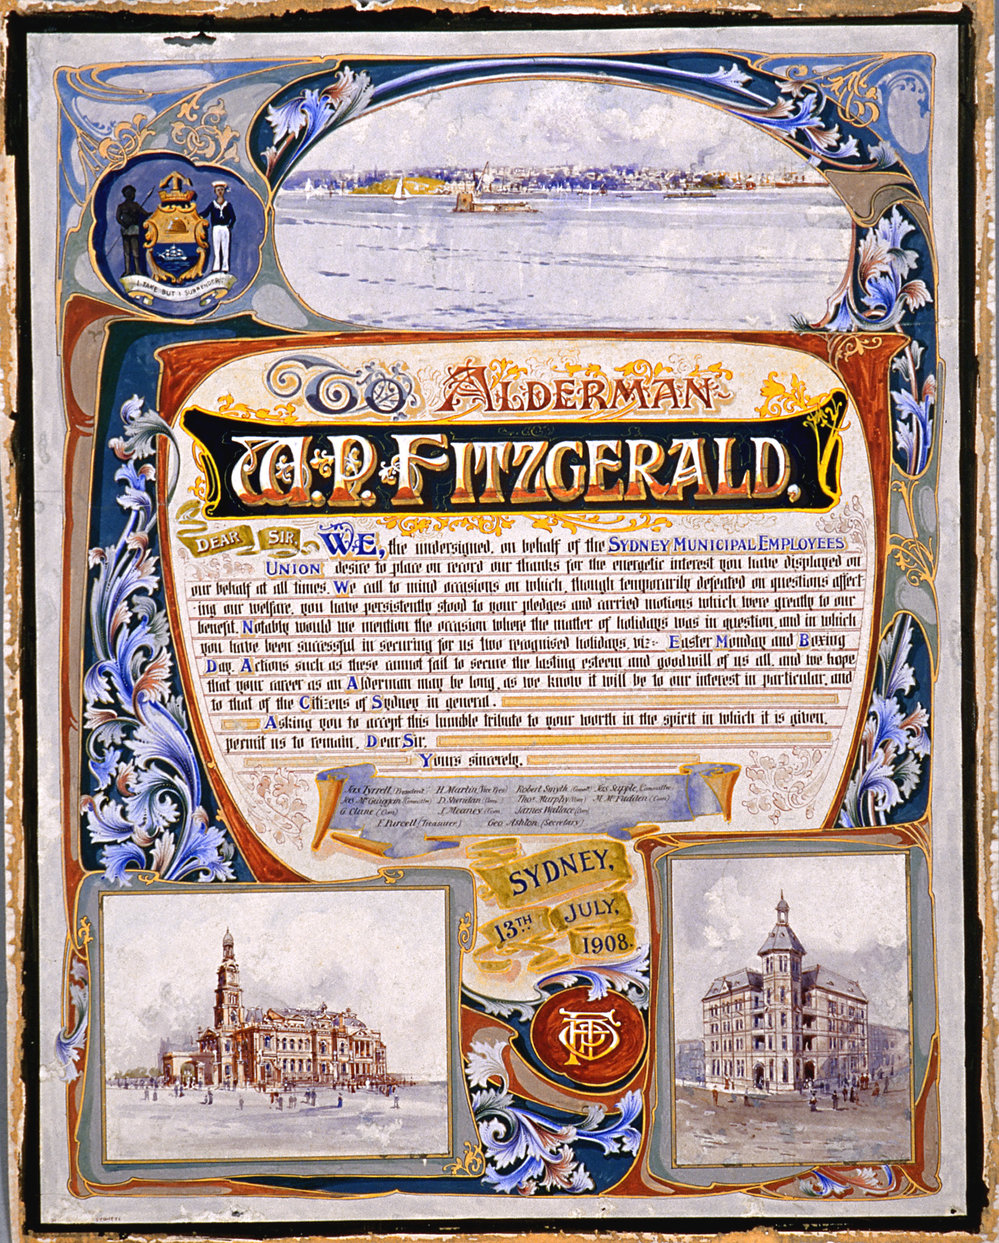 I TAKE BUT I SURRENDER
TO ALDERMAN
W. P. FITZGERALD.
DEAR SIR, WE, the undersigned, on behalf of the SYDNEY MUNICIPAL EMPLOYEES
UNION desire to place on record our thanks for the energetic interest you have displayed on
our behalf at all times. We call to mind occasions on which, though temporarily defeated on questions affect-
ing our welfare, you have persistently stood to your pledges and carried motions which were greatly to our
benefit. Notably would we mention the occasion where the matter of holidays was in question, and in which
you have been successful in securing for us two recognised holidays, viz:- Easter Monday and Boxing
Day. Actions such as these cannot fail to secure the lasting esteem and goodwill of us all, and we hope
that your career as an Alderman may be long, as we know it will be to our interest in particular, and
to that of the Citizens of Sydney in general.
Asking you to accept this humble tribute to your worth in the spirit in which it is given,
permit us to remain, Dear Sir,
Yours sincerely,
Jas Tyrrell, President H. Martin, (Vice Pres) Robert Smyth Jas Sipple, Committee
Jas McGuiggan (Committee) D. Sheridan (Com) Thos Murphy (Com) M. McFadden (Com)
G Clune (Com) J. Meaney (Com) James Wallace (Com)
F. Purcell (Treasurer) Geo Ashton (Secretary)
SYDNEY,
13TH JULY,
1908.